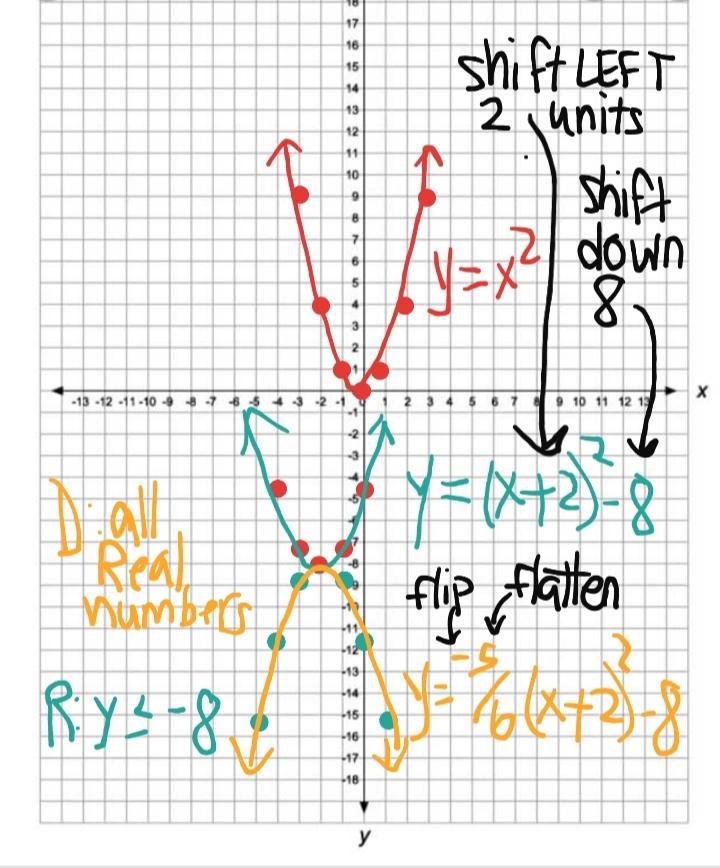 18
17
16
15
14
13
12
11
10
9
8
7
6
5
4
3
2
1
shift LEFT
2 units
shift
down
8
y=x²
-13 -12 -11 -10 -9 -8 -7 -6 -5 -4 -3 -2 -1 0 1 2 3 4 5 6 7 8 9 10 11 12 13
x
-1
-2
-3
-4
-5
-6
-7
-8
-9
-10
-11
-12
-13
-14
-15
-16
-17
-18
y
y=(x+2)²-8
D: all
Real
numbers
flip flatten
R: y ≤ -8
y=-5/6(x+2)²-8